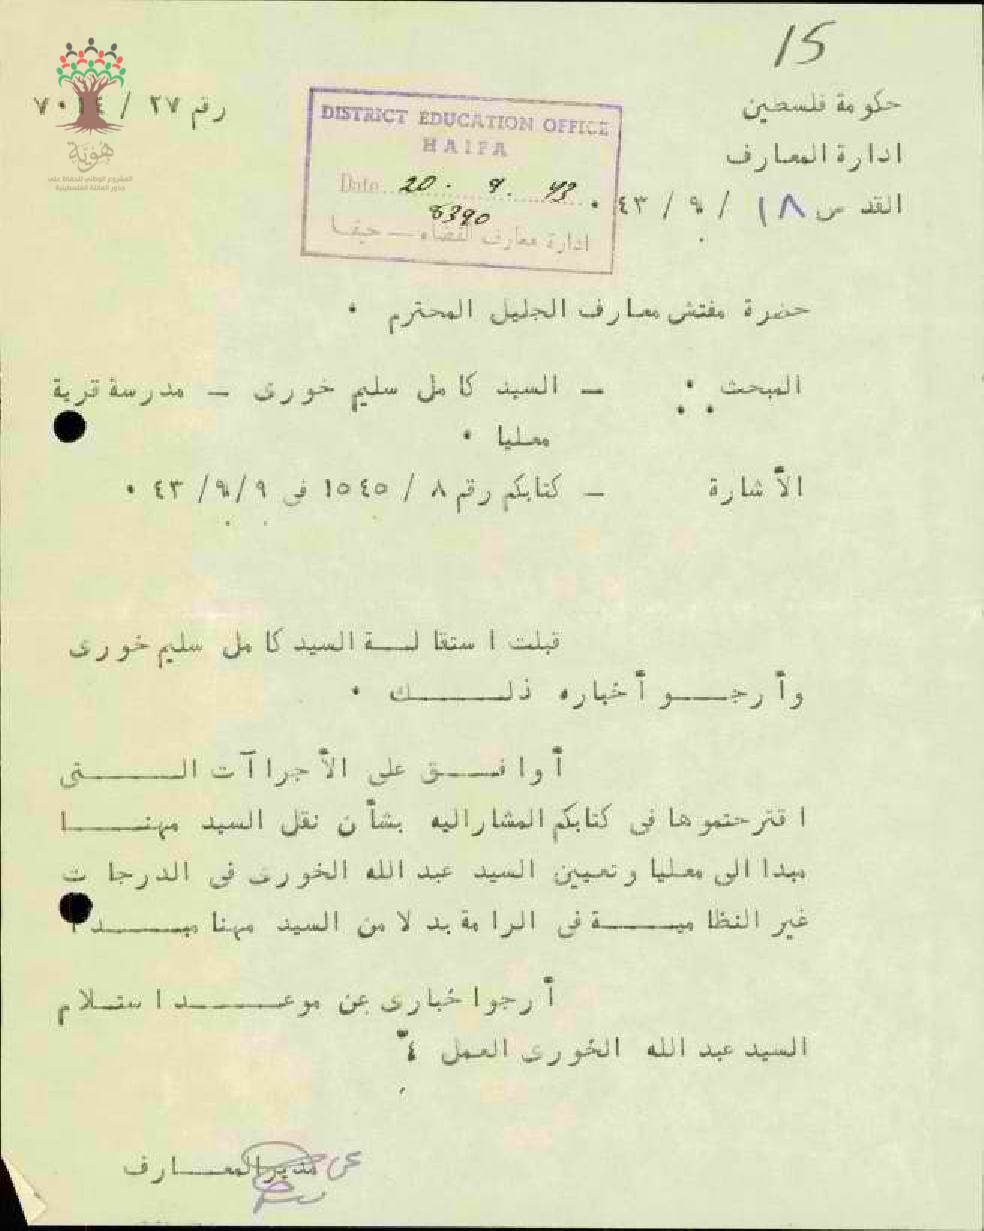 15
حكومة فلسطين
رقم ٢٧ / ٧٠١٤
ادارة المعارف
القدس ١٨ / ٩ / ٤٣ .
DISTRICT EDUCATION OFFICE
HAIFA
Date 20 . 9 . 43
8390
ادارة معارف القضاء – حيفا
هوية
المشروع الوطني للحفاظ على
جذور العائلة الفلسطينية
حضرة مفتش معارف الجليل المحترم .
المبحث : – السيد كامل سليم خورى – مدرسة قرية
معليا .
الأشارة – كتابكم رقم ٨ / ١٥٤٥ فى ٩/ ٩/ ٤٣ .
قبلت استقالة السيد كامل سليم خورى
وأرجو أخباره ذلك .
أوافق على الأجراآت التى
اقترحتموها فى كتابكم المشاراليه بشأن نقل السيد مهنا
مبدا الى معليا وتعيين السيد عبد الله الخورى فى الدرجات
غير النظامية فى الرامة بدلا من السيد مهنا مبدا
أرجواخبارى عن موعد استلام
السيد عبد الله الخورى العمل
عن مدير المعارف